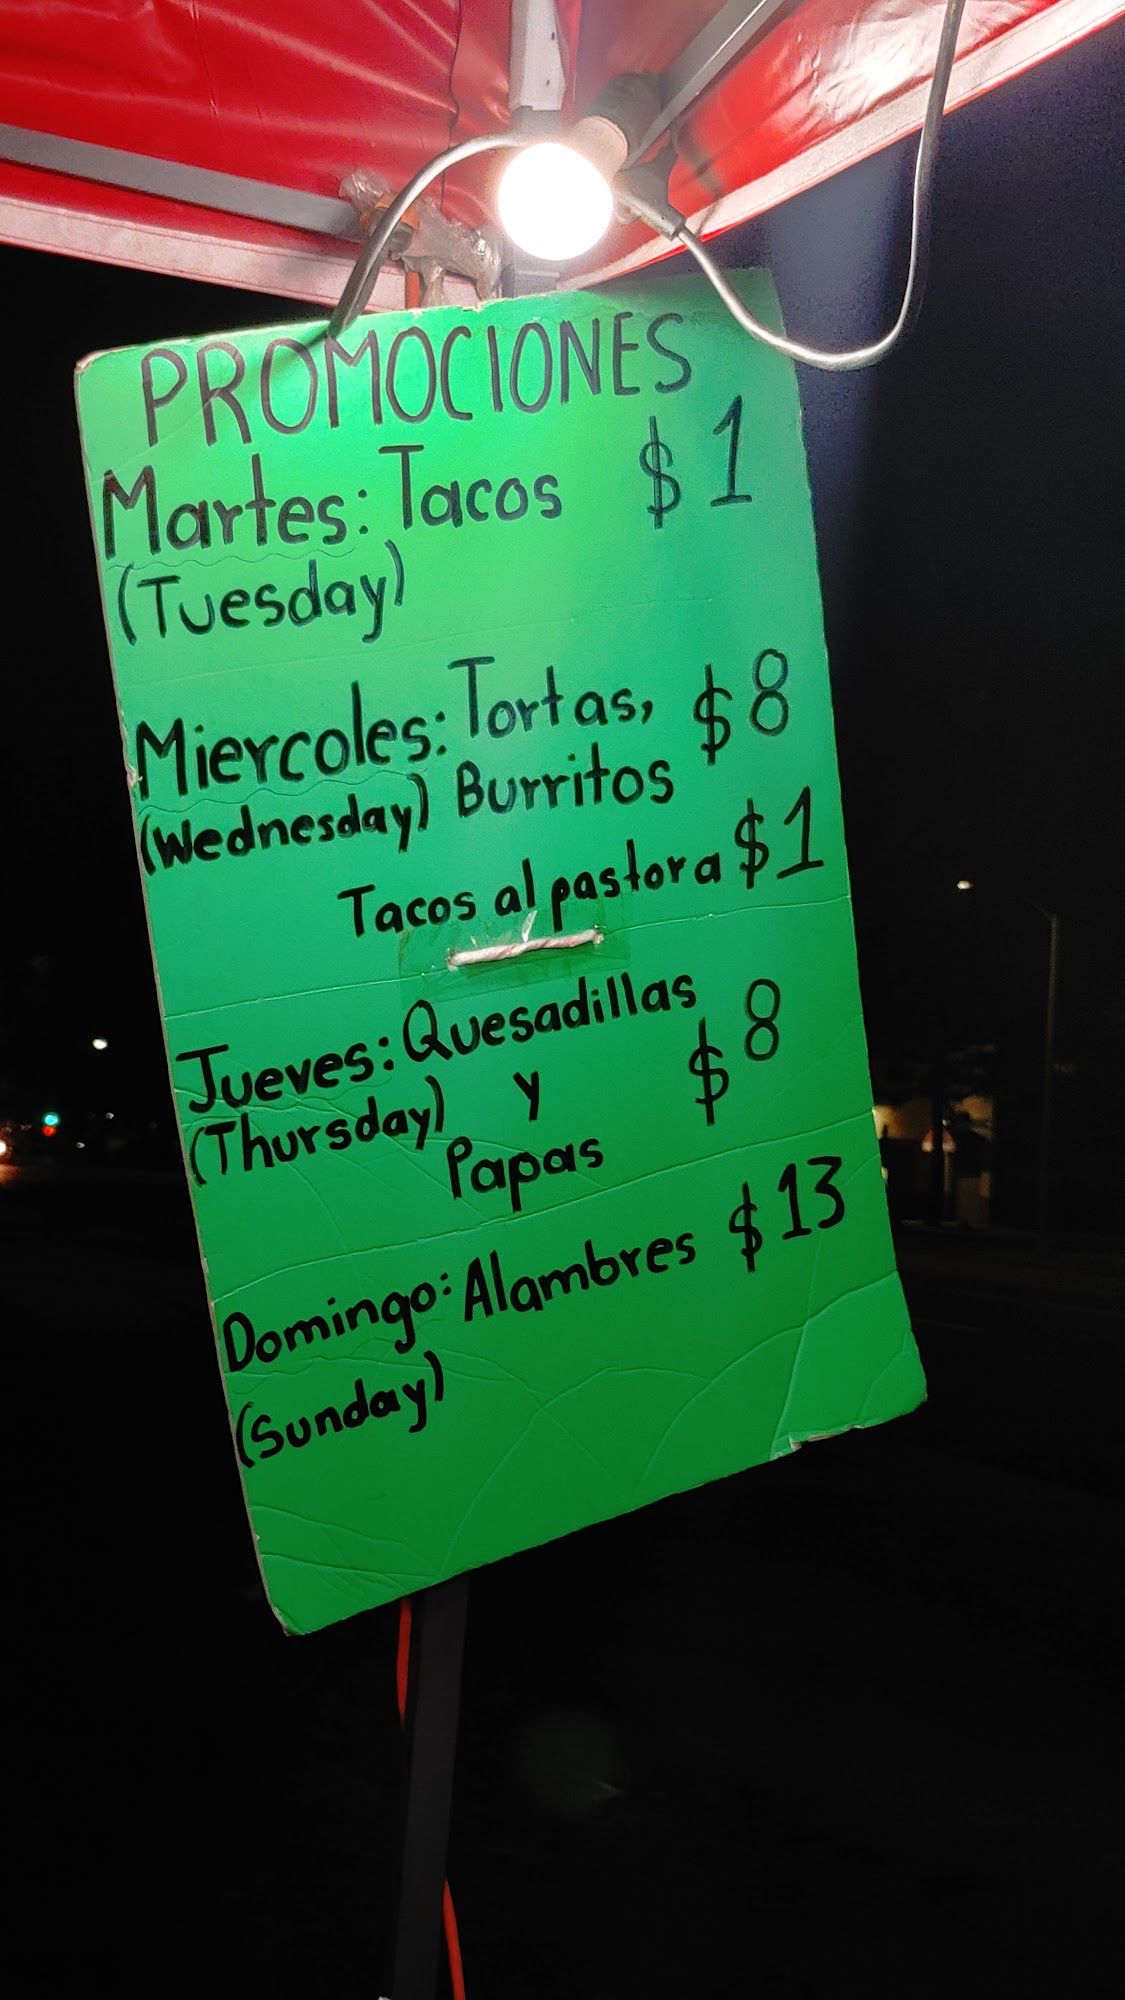 PROMOCIONES
Martes: Tacos $1
(Tuesday)
Miercoles: Tortas, $8
(Wednesday) Burritos
Tacos al pastor a $1
Jueves: Quesadillas $8
(Thursday) y
Papas
Domingo: Alambres $13
(Sunday)